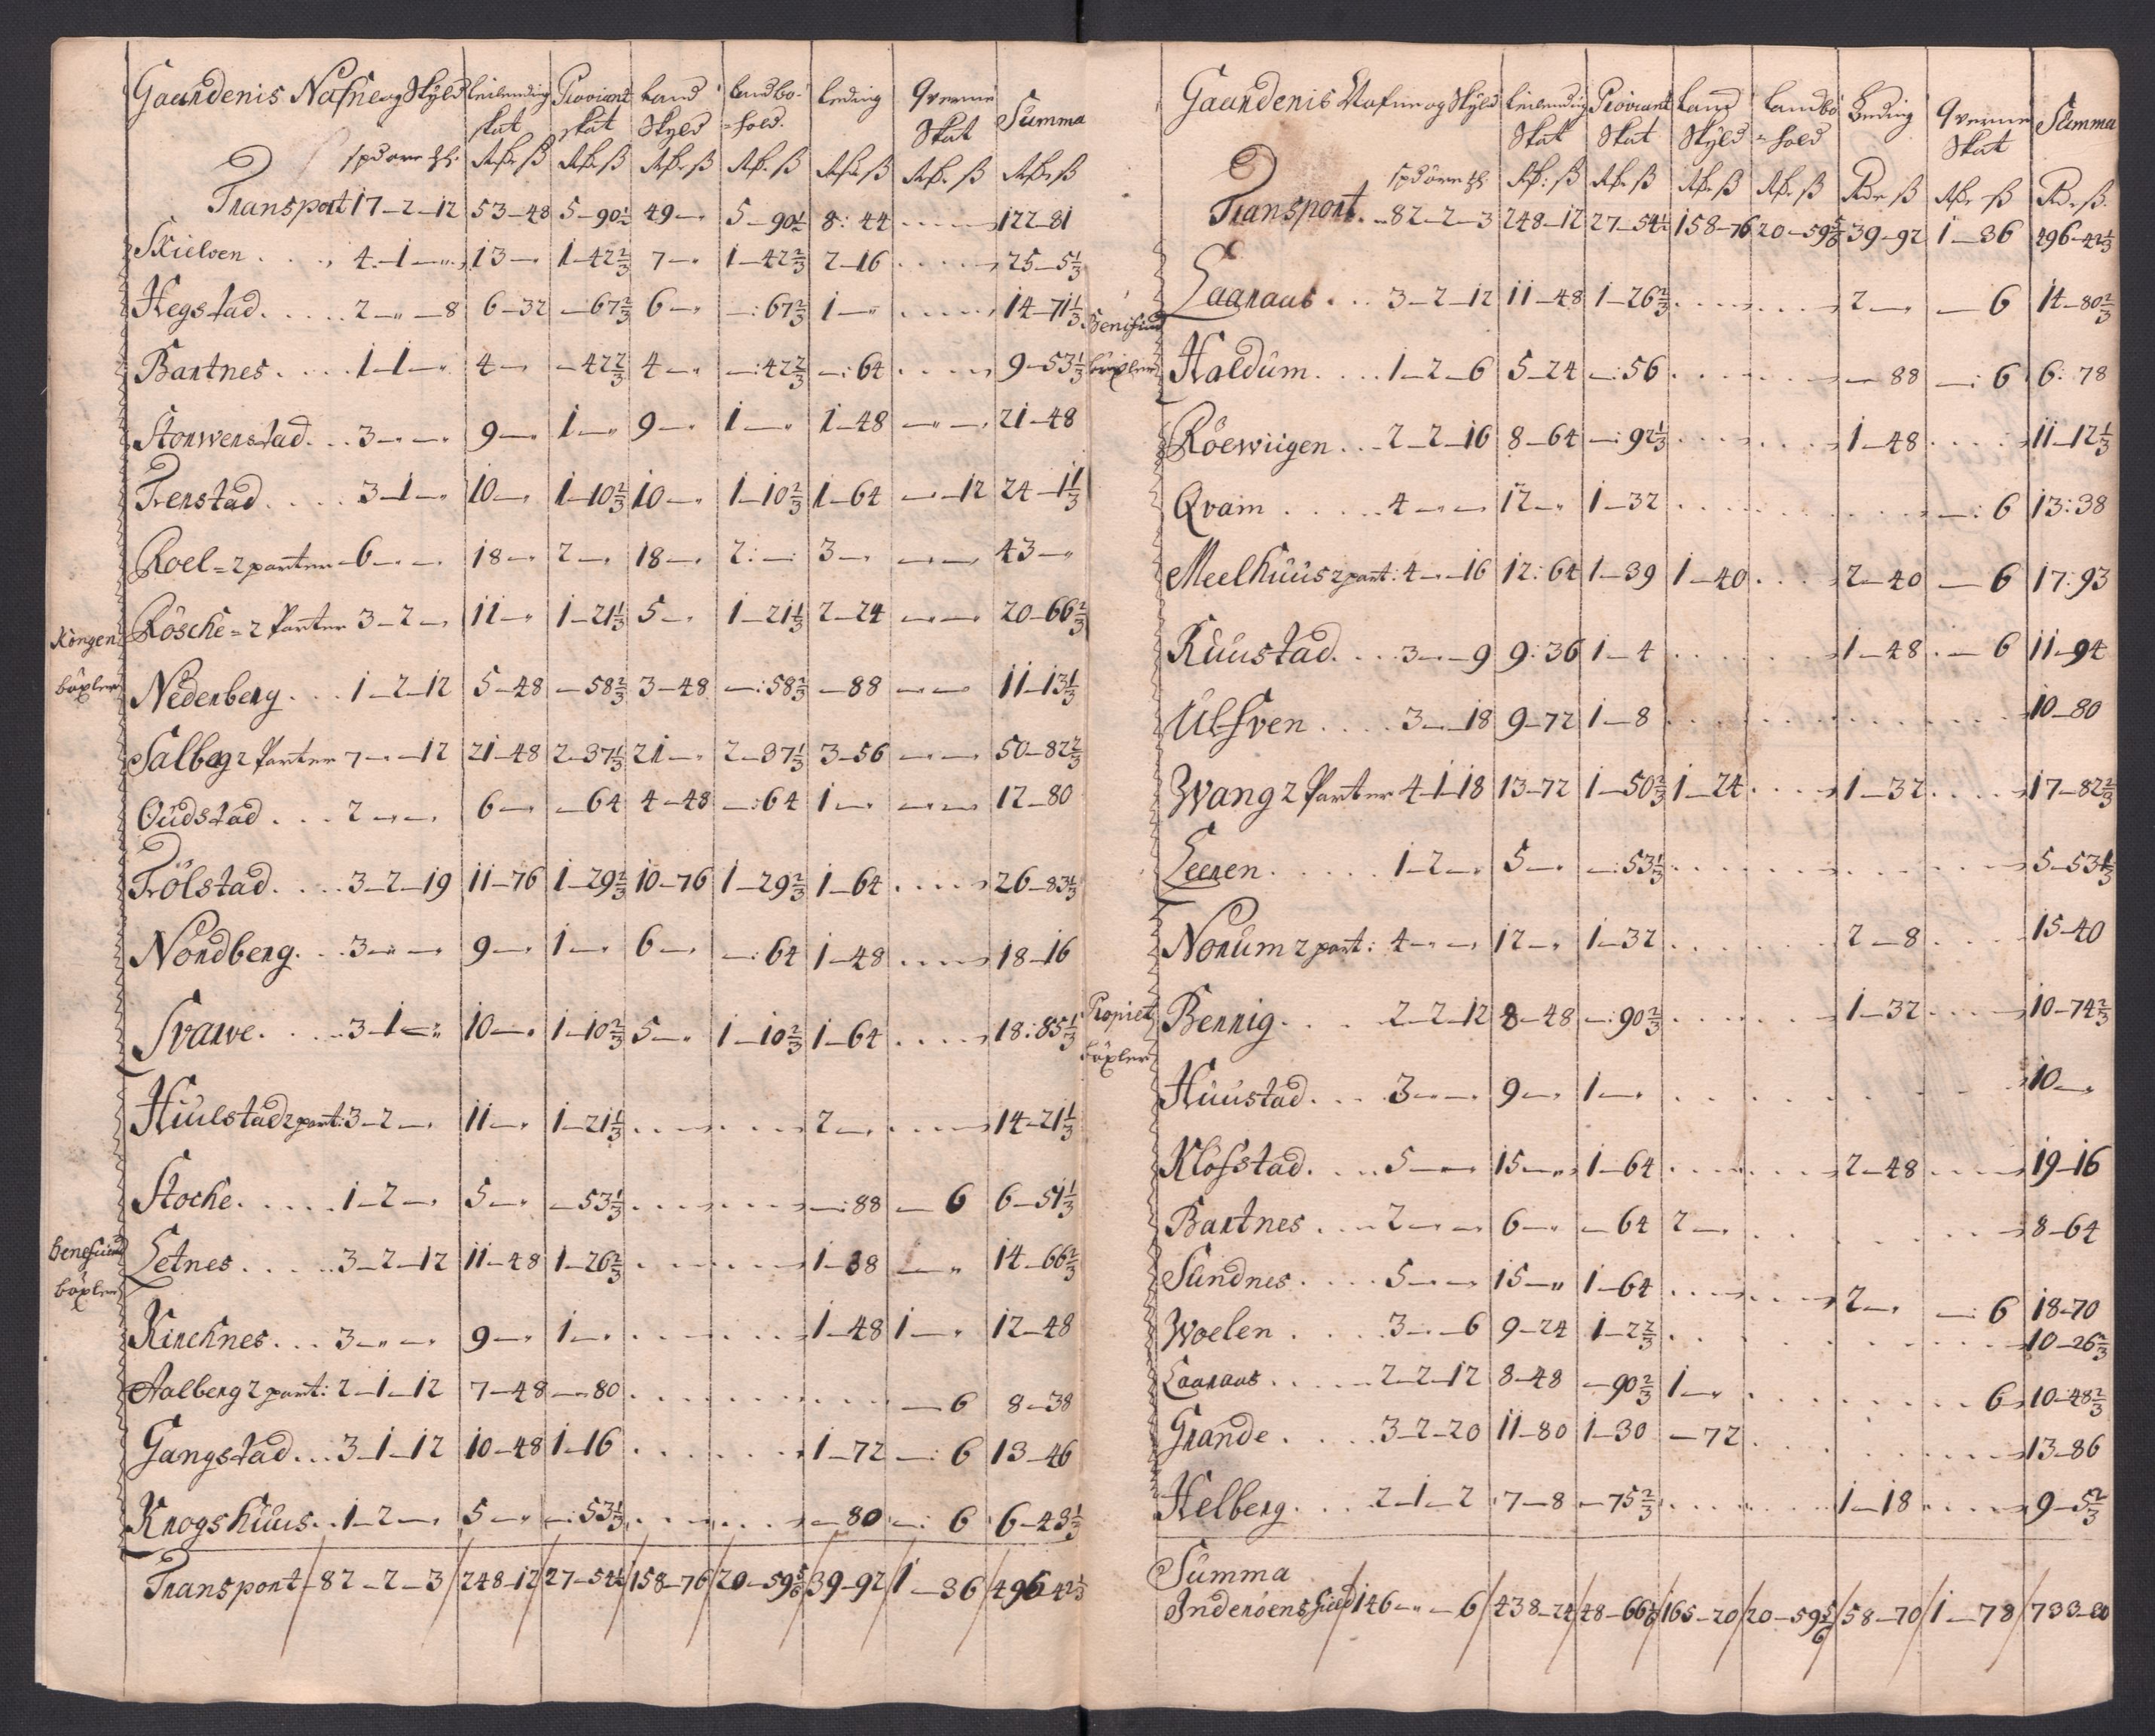 Gaardenis Nafne og Skyld leilendig skat Proviant skat Land Skyld Landbo-hold. Leding Qverne Skat Summa
spd øre  Rdr ß Rdr ß Rdr ß Rdr ß Rdr ß Rdr ß Rdr ß
Transport 17-2-12 53-48 5-90½ 49-" 5-90½ 8:44 122-81
Skielven 4-1-" 13-" 1-42⅔ 7-" 1-42⅔ 2-16 25-5⅓
Hegstad 2-"-8 6-32 -67⅔ 6-" -:67⅔ 1-" 14-71⅓
Bartnes 1-1-" 4-" -42⅔ 4-" -:42⅔ -:64 9-53⅓
Storwerstad 3-"-" 9-" 1-" 9-" 1-" 1-48 21-48
Trerstad 3-1-" 10-" 1-10⅔ 10-" 1-10⅔ 1-64 -"-12 24-1⅓
Roel=2 parter 6-"-" 18-" 2-" 18-" 2:- 3-" 43-"
Kongen bøxler
Røsche=2 Parter 3-2-" 11-" 1-21⅓ 5-" 1-21⅓ 2-24 20-66⅔
Nederberg 1-2-12 5-48 -58⅔ 3-48 -:58⅔ -88 11-13⅓
Salberg 2 Parter 7-"-12 21-48 2-37⅓ 21-" 2-37⅓ 3-56 50-82⅔
Oudstad 2-"-" 6-" -64 4-48 -:64 1-" 12-80
Trølstad 3-2-19 11-76 1-29⅔ 10-76 1-29⅔ 1-64 26-83⅓
Nordberg 3-"-" 9-" 1-" 6-" -:64 1-48 18-16
Svarve 3-1-" 10-" 1-10⅔ 5-" 1-10⅔ 1-64 18:85⅓
Huulstad 2 part: 3-2-" 11-" 1-21⅓ 2-" 14-21⅓
Stoche 1-2-" 5-" -53⅓ -:88 -6 6-51⅓
Beneficerid bøxler
Letnes 3-2-12 11-48 1-26⅔ 1-38 -" 14-66⅔
Kirchnes 3-"-" 9-" 1-" 1-48 1-" 12-48
Aalberg 2 part: 2-1-12 7-48 -80 -6 8-38
Gangstad 3-1-12 10-48 1-16 1-72 -:6 13-46
Krogshuus 1-2-" 5-" -:53⅓ -80 -:6 6-43⅓
Transport 82-2-3 248-12 27-54½ 158-76 20-59⅚ 39-92 1-36 496-42⅓
Gaardenis Nafne og Skyld leilendig Skat Proviant Skat Land Skyld Landbo=hold Leding Qverne Skat Summa
spd øre  Rdr: ß Rdr ß Rdr ß Rdr ß Rdr ß Rdr ß Rdr ß.
Transport 82-2-3 248-12 27-54½ 158-76 20-59⅚ 39-92 1-36 496-42⅓
Laaraas 3-2-12 11-48 1-26⅔ 2-" -6 14-80⅔
Benificerid bøxler
Haldum 1-2-6 5-24 -:56 -88 -:6 6:78
Røewiigen 2-2-16 8-64 -:92⅓ 1-48 11-12⅓
Qvam 4-"-" 12-" 1-32 -:6 13:38
Meelhuus 2 part: 4-"-16 12:64 1-39 1-40 2-40 -6 17:93
Ruustad 3-"-9 9:36 1-4 1-48 -6 11-94
Ulfven 3-"-18 9-72 1-8 10-80
Wang 2 Parter 4-1-18 13-72 1-50⅔ 1-24 1-32 17-82⅔
Leeren 1-2-" 5-" -:53⅓ 5-53⅓
Norum 2 part: 4-"-" 12-" 1-32 2-8 15-40
Propriet bøxler
Berrig 2-2-12 8-48 -:90⅔ 1-32 10-74⅔
Huustad 3-"-" 9-" 1-" 10-"
Klofstad 5-"-" 15-" 1-64 2-48 19-16
Bartnes 2-"-" 6-" -64 2-" 8-64
Sundnes 5-"-" 15-" 1-64 2-" -:6 18-70
Woelen 3-"-6 9-24 1-2⅔ 10-26⅔
Laaraas 2-2-12 8-48 -90⅔ 1-" 6 10-48⅔
Grande 3-2-20 11-80 1-30 -72 13-86
Helberg 2-1-2 7-8 -75⅔ 1-18 9-5⅔
Summa
Inderøens 146-"-6 438-24 48-66⅙ 165-20 20-59⅚ 58-70 1-78 733-30